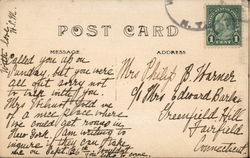 With love
H.P.W.
POST CARD
MESSAGE
ADDRESS
Called you up on
Sunday, but you were
all out. Sorry not
to talk with you.
Mrs told me
of a nice place where
we could get rooms in
New York. I am writing to
inquire if they can take
me on Sept.
to come.
Mrs Philip B. Warner
c/o Mrs Edward Burke
Greenfield Hill
Fairfield
Connecticut
1 CENT 1